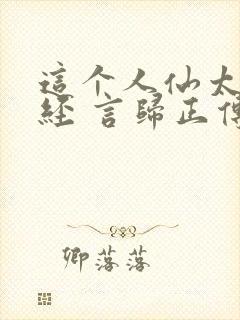 這个人仙太
經 言歸正傳
卿落落